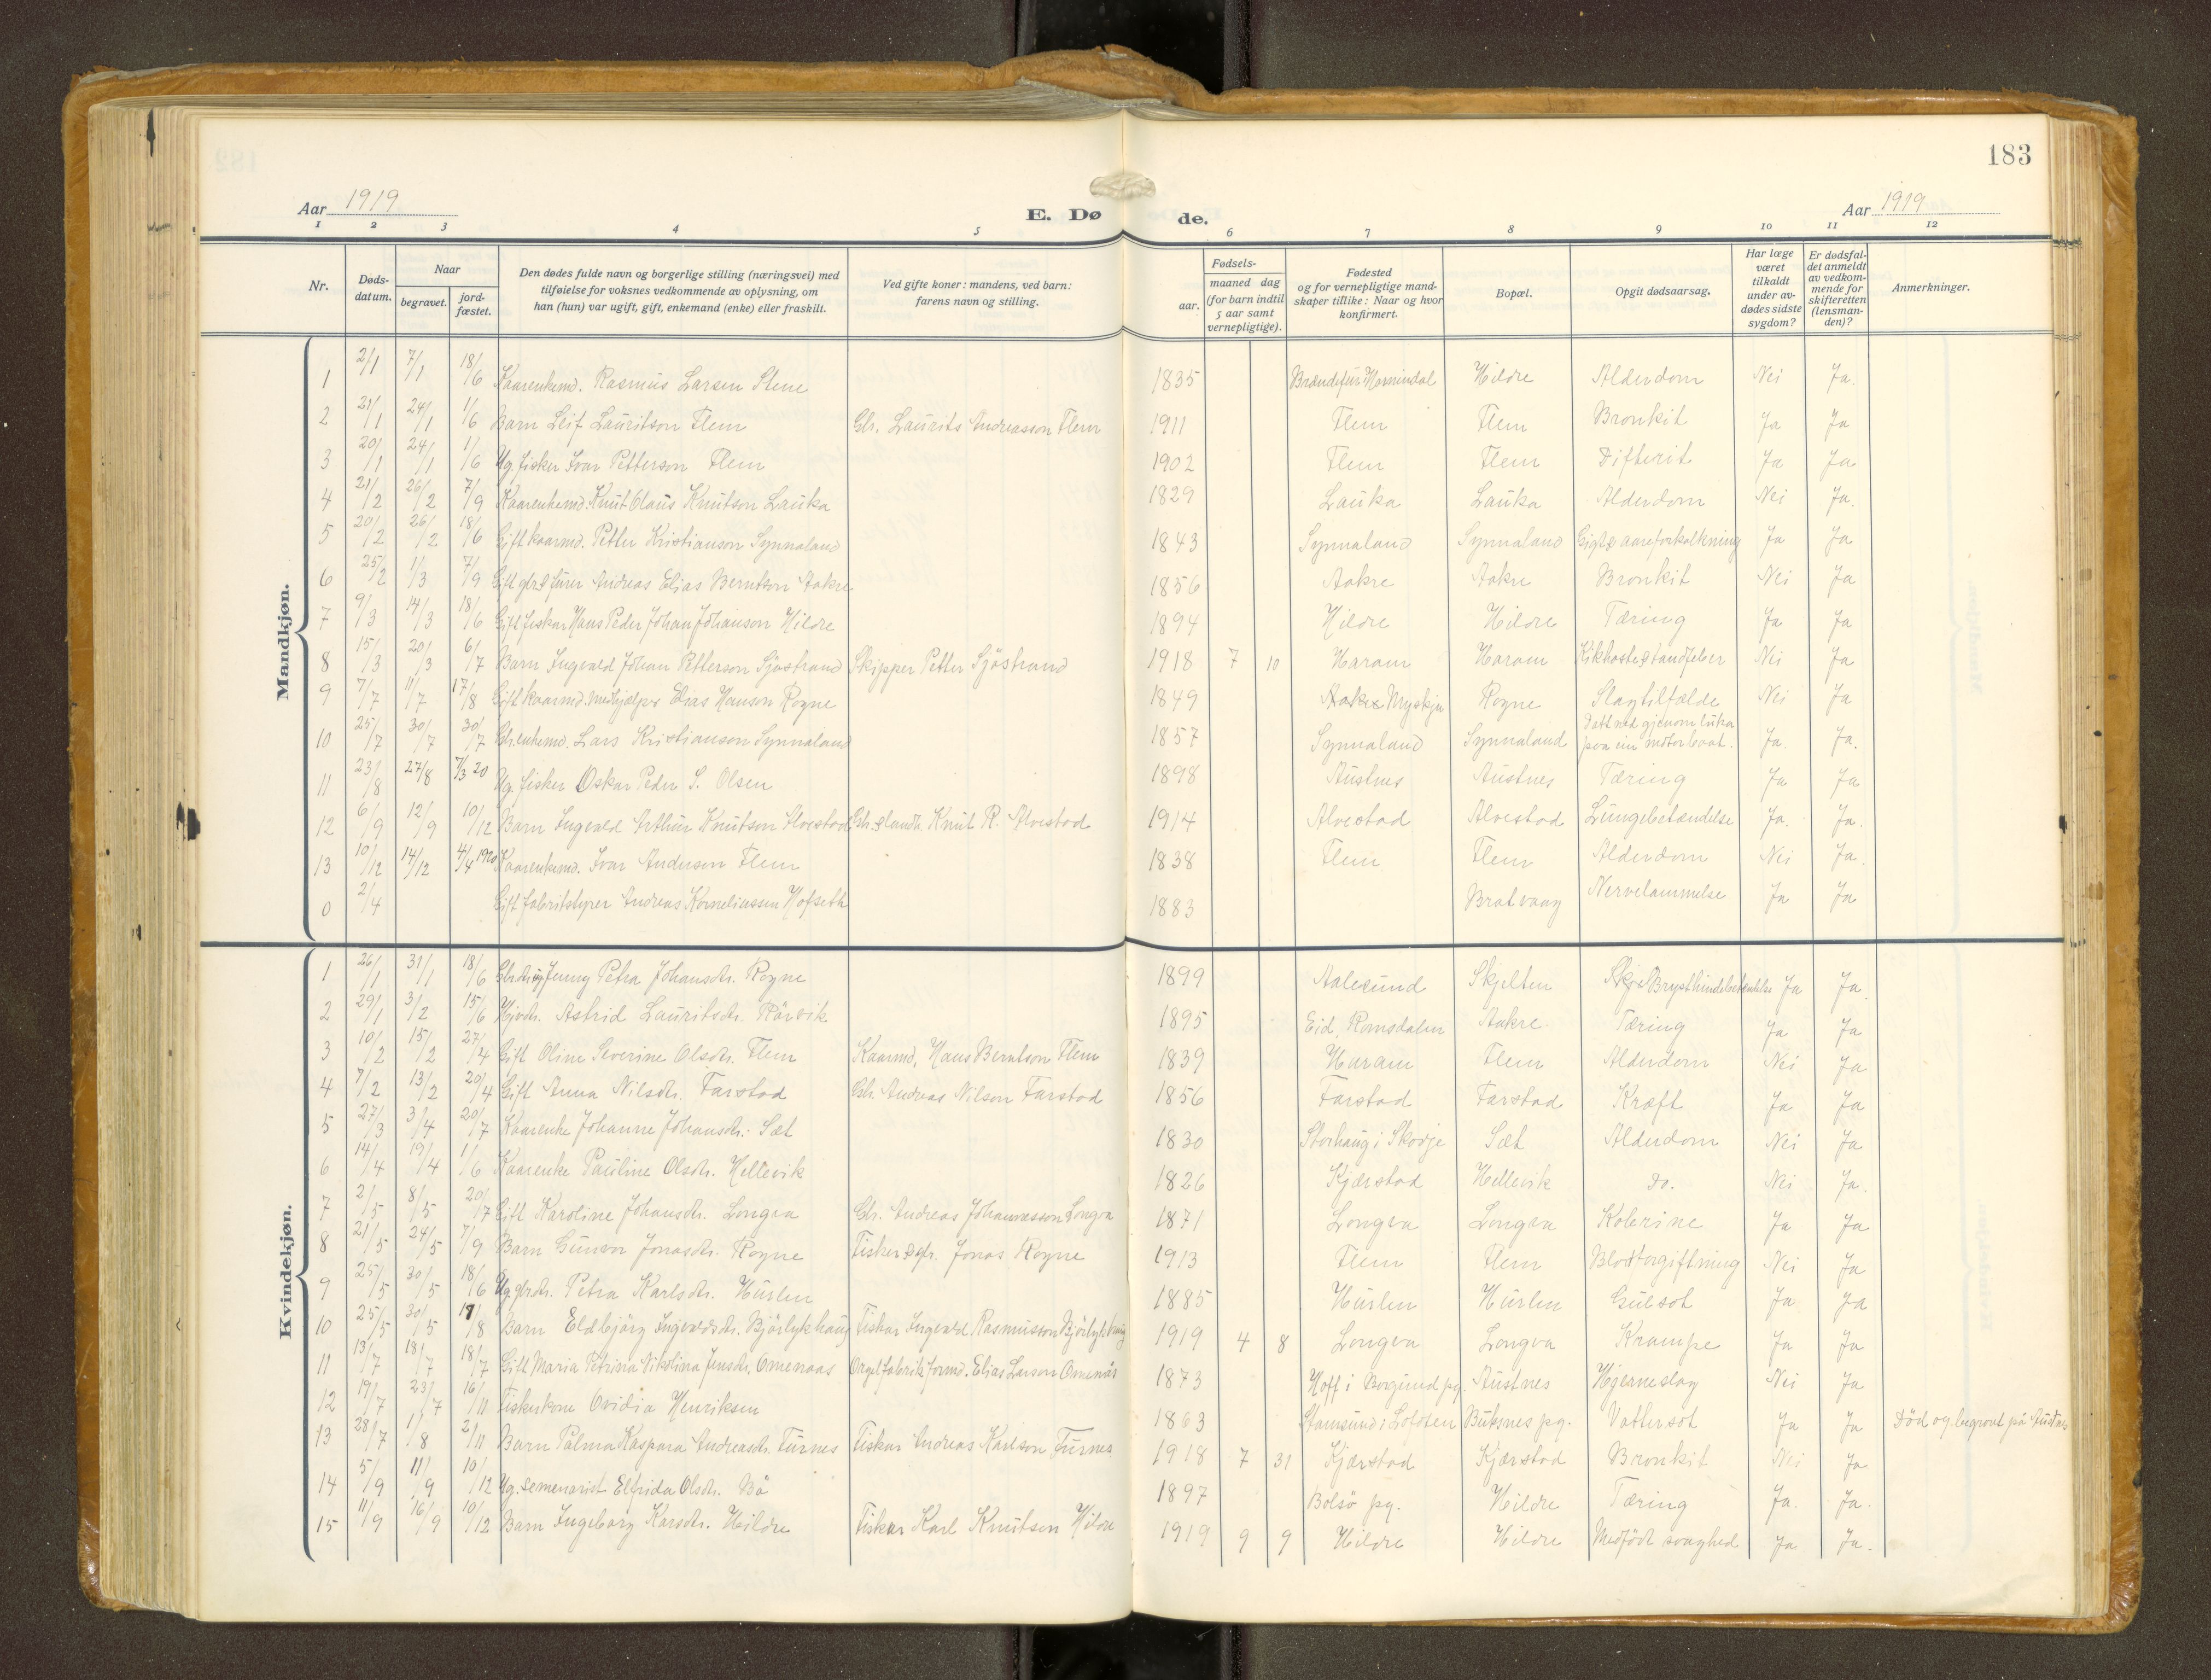 183
Aar 1919
E. Døde.
Aar 1919
1 2 3 4 5 6 7 8 9 10 11 12
Nr.
Døds-datum.
Naar
begravet.
jord-fæstet.
Den dødes fulde navn og borgerlige stilling (næringsvei) med
tilføielse for voksnes vedkommende av oplysning, om
han (hun) var ugift, gift, enkemand (enke) eller fraskilt.
Ved gifte koner: mandens, ved barn:
farens navn og stilling.
Fødsels-
aar.
maaned dag
(for barn indtil
5 aar samt
vernepligtige).
Fødested
og for vernepligtige mand-
skaper tillike: Naar og hvor
konfirmert.
Bopæl.
Opgit dødsaarsag.
Har læge
været
tilkaldt
under av-
dødes sidste
sygdom?
Er dødsfal-
det anmeldt
av vedkom-
mende for
skifteretten
(lensman-
den)?
Anmerkninger.
Mandkjøn.
1 2/1 7/1 18/6 Kaarenkemd. Rasmus Larsen Stene 1835 Hornindal Hildre Alderdom Nei Ja.
2 21/1 24/1 1/6 Barn Leif Lauritson Flem Gbr. Laurits Andreasson Flem 1911 Flem Flem Bronkit Ja Ja
3 20/1 24/1 1/6 Ug. fisker Ivar Petterson Flem 1902 Flem Flem Difterit Ja Ja
4 21/2 26/2 7/9 Kaarenkemd. Knut Olaus Knutson Lauka 1829 Lauka Lauka Alderdom Nei Ja.
5 20/2 26/2 18/6 Gift kaarmd. Petter Kristianson Synnaland 1843 Synnaland Synnaland Gigt & aareforkalkning Ja Ja
6 25/2 1/3 7/9 Gift gbr. & Andreas Elias Berntson Aakre 1856 Aakre Aakre Bronkit Nei Ja
7 9/3 14/3 18/6 Gift fiskar Hans Peder Johan Johanson Hildre 1894 Hildre Hildre Tæring Ja Ja
8 15/3 20/3 6/7 Barn Ingevald Johan Petterson Sjøstrand Skipper Petter Sjøstrand 1918 7 10 Haram Haram Kikhoste & tandfeber Nei Ja
9 7/7 11/7 17/8 Gift kaarmd. medhjælper Elias Hanson Rogne 1849 Myskja Rogne Slagtilfælde Nei Ja
10 25/7 30/7 30/7 Gbr. enkemd. Lars Kristianson Synnaland 1857 Synnaland Synnaland Datt ned gjenom luka paa ein motorbaat. Ja. Ja.
11 23/8 27/8 7/3 20 Ug. fisker Oskar Peder S. Olsen 1898 Austnes Austnes Tæring Ja Ja
12 6/9 12/9 10/12 Barn Ingevald Arthur Knutson Alvestad Gbr. & landh. Knut R. Alvestad 1914 Alvestad Alvestad Lungebetændelse Ja. Ja.
13 10/12 14/12 4/4 1920 Kaarenkemd. Ivar Anderson Flem 1838 Flem Flem Alderdom Nei Ja.
0 2/4 Gift fabrikstyrer Andreas Korneliussen Hofseth 1883 Bratvaag Nervelammelse Ja Ja
Kvindekjøn.
1 26/1 31/1 18/6 Jenny Petra Johansdtr. Rogne 1899 Aalesund Skjelten Brysthindebetændelse Ja Ja.
2 29/1 3/2 15/6 Astrid Lauritsdtr. Rörvik 1895 Eid, Romsdalen Aakre Tæring Ja Ja
3 10/2 15/2 27/4 Gift Oline Severine Olsdtr. Flem Kaarmd. Hans Berntson Flem 1839 Haram Flem Alderdom Nei Ja
4 7/2 13/2 20/4 Gift Anna Nilsdtr. Farstad Gbr. Andreas Nilson Farstad 1856 Farstad Farstad Kræft Ja Ja
5 27/3 3/4 20/7 Kaarenke Johanne Johansdtr. Sæt 1830 Storhaug i Skodje Sæt Alderdom Nei Ja
6 14/4 19/4 1/6 Kaarenke Pauline Olsdtr. Hellevik 1826 Kjærstad Hellevik do. Nei Ja.
7 2/5 8/5 20/7 Gift Karoline Johansdtr. Longva Gbr. Andreas Johannesson Longva 1871 Longva Longva Kolerine Ja Ja
8 21/5 24/5 7/9 Barn Gunvor Jonasdtr. Rogne Fisker & gbr. Jonas Rogne 1913 Flem Flem Blodforgiftning Nei Ja
9 25/5 30/5 18/6 Ug. gbrdtr. Petra Karlsdtr. Hurlen 1885 Hurlen Hurlen Gulsot Ja Ja
10 25/5 30/5 17/8 Barn Eldbjörg Ingevaldsdtr. Björlykhaug Fiskar Ingevald Rasmusson Björlykhaug 1919 4 8 Longva Longva Krampe Ja Ja
11 13/7 18/7 18/7 Gift Maria Petrina Nikolina Jensdtr. Omenaas Orgelfabrik formd. Elias Larson Omenås 1873 Hoff i Borgund pg. Austnes Hjerneslag Nei Ja
12 19/7 23/7 16/11 Fiskerkone Ovidia Henriksen 1863 Stamsund i Lofoten Buksnes pg. Vattersot Ja Ja Död og begravet på Austnes
13 28/7 1/8 2/11 Barn Palma Kaspara Andreasdtr. Furnes Fiskar Andreas Karlson Furnes 1918 7 31 Kjærstad Kjærstad Bronkit Nei Ja
14 5/9 11/9 10/12 Ug. semenarist Elfrida Olsdtr. Bö 1897 Bolsö pg. Hildre Tæring Ja. Ja.
15 11/9 16/9 10/12 Barn Ingeborg Karsdtr. Hildre Fiskar Karl Knutson Hildre 1919 9 9 Hildre Hildre Medfödt svaghed Ja Ja.